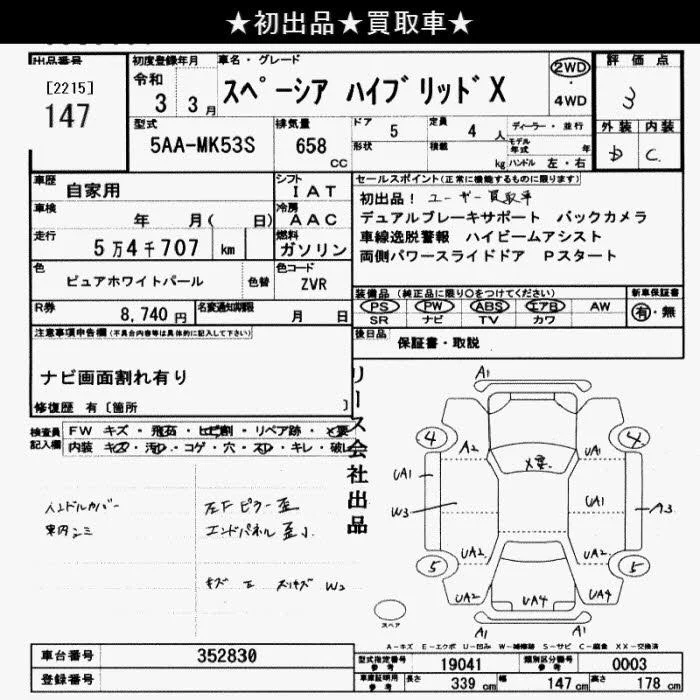 ★初出品★買取車★
出品番号
[2215]
147
初度登録年月
令和
3 3月
車名・グレード
スペーシア ハイブリッドX
2WD
・
4WD
評価点
3
外装 内装
D C
型式
5AA-MK53S
排気量
658
CC
ドア 5
定員 4 人
ディーラー・並行
形状
積載
kg
モデル年式 年
ハンドル 左・右
車歴 自家用
シフト
IAT
車検 年 月( 日)
冷房
AAC
走行 5万4千707 km
燃料
ガソリン
色 ピュアホワイトパール
色替
色コード
ZVR
R券 8,740円
名変通知期限 月 日
セールスポイント(正常に機能するものに限ります)
初出品! ユーザー買取車
デュアルブレーキサポート バックカメラ
車線逸脱警報 ハイビームアシスト
両側パワースライドドア Pスタート
装備品 (純正品に限り○をつけてください)
PS PW ABS エアB AW
SR ナビ TV カワ
新車保証書
有・無
後日品 保証書・取説
注意事項申告欄(不具合内容等は具体的に記入して下さい)
ナビ画面割れ有り
修復歴 有〔箇所 〕
検査員記入欄
FW キズ・飛石・ヒビ割・リペア跡・×要
内装 キズ・汚れ・コゲ・穴・スレ・キレ・破レ
リース会社出品
ハンドルカバー
左Fピラー歪
エンドパネル歪小
W3
A1
4
A2
UA1
×要
4
UA1
W3
UA1
A3
UA2
UA2
5
5
UA2
UA4
UA4
A1
スペア
A-キズ E-エクボ U-凹み W-補修跡 S-サビ C-腐食 XX-交換済
車台番号 352830
登録番号
型式指定番号
参考
19041
類別区分番号
参考
0003
車庫証明用
参考
長さ 339 cm 幅 147 cm 高さ 178 cm